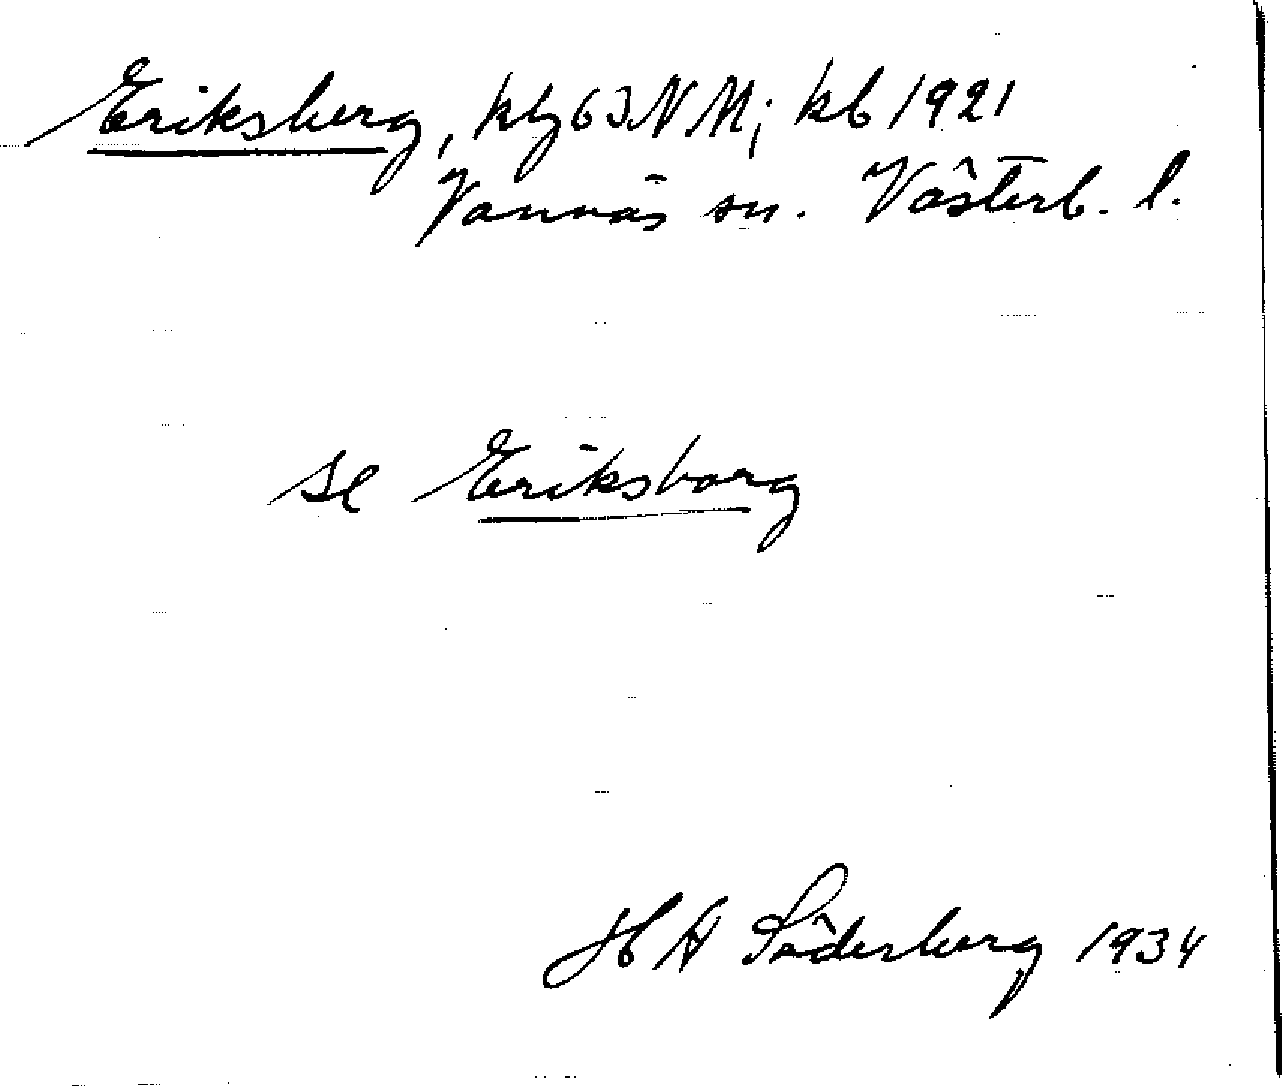 Eriksberg, kbg 63 NM; kb 1921
Vännäs sn. Västerb. l.
se Eriksborg
H A Söderberg 1934